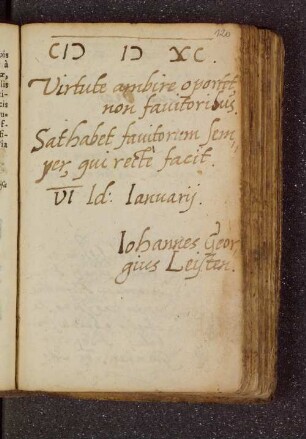 120
CIƆ IƆ XC.
Virtute ambire oportet,
non fauitoribus.
Sat habet fauitorum sem,
per, qui recte facit.
VI Id: Ianuarij.
Iohannes Geor
gius Leisten.